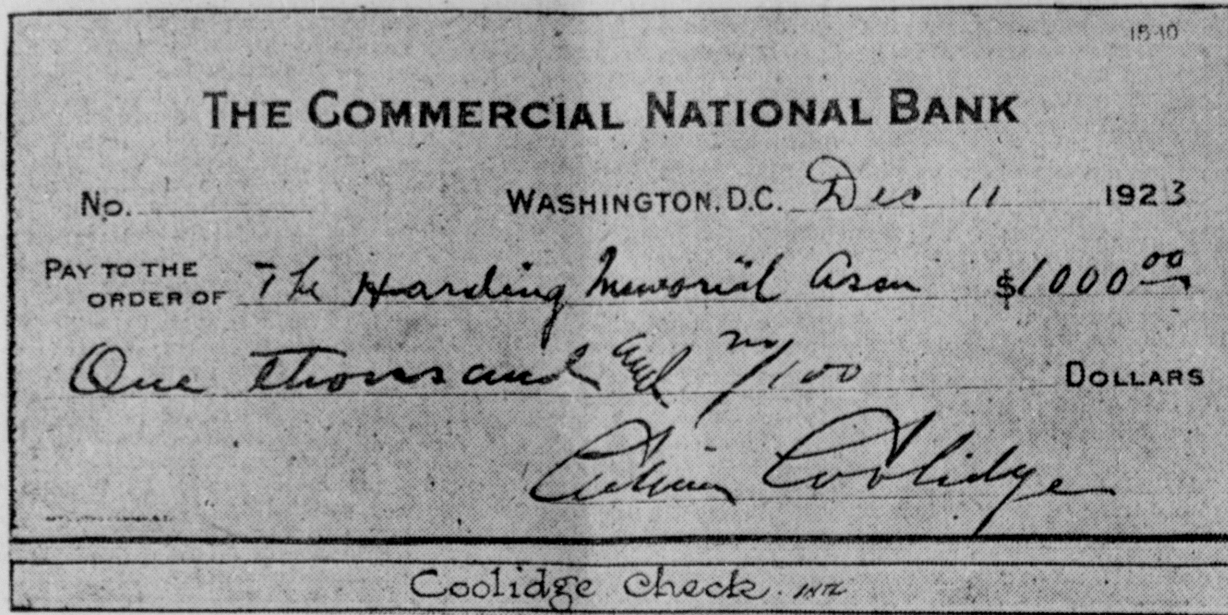 15-10
THE COMMERCIAL NATIONAL BANK
No. WASHINGTON, D.C. Dec 11 1923
PAY TO THE
ORDER OF The Harding Memorial Assn $1000 00
One thousand and no/100 DOLLARS
Calvin Coolidge
Coolidge check. INTL